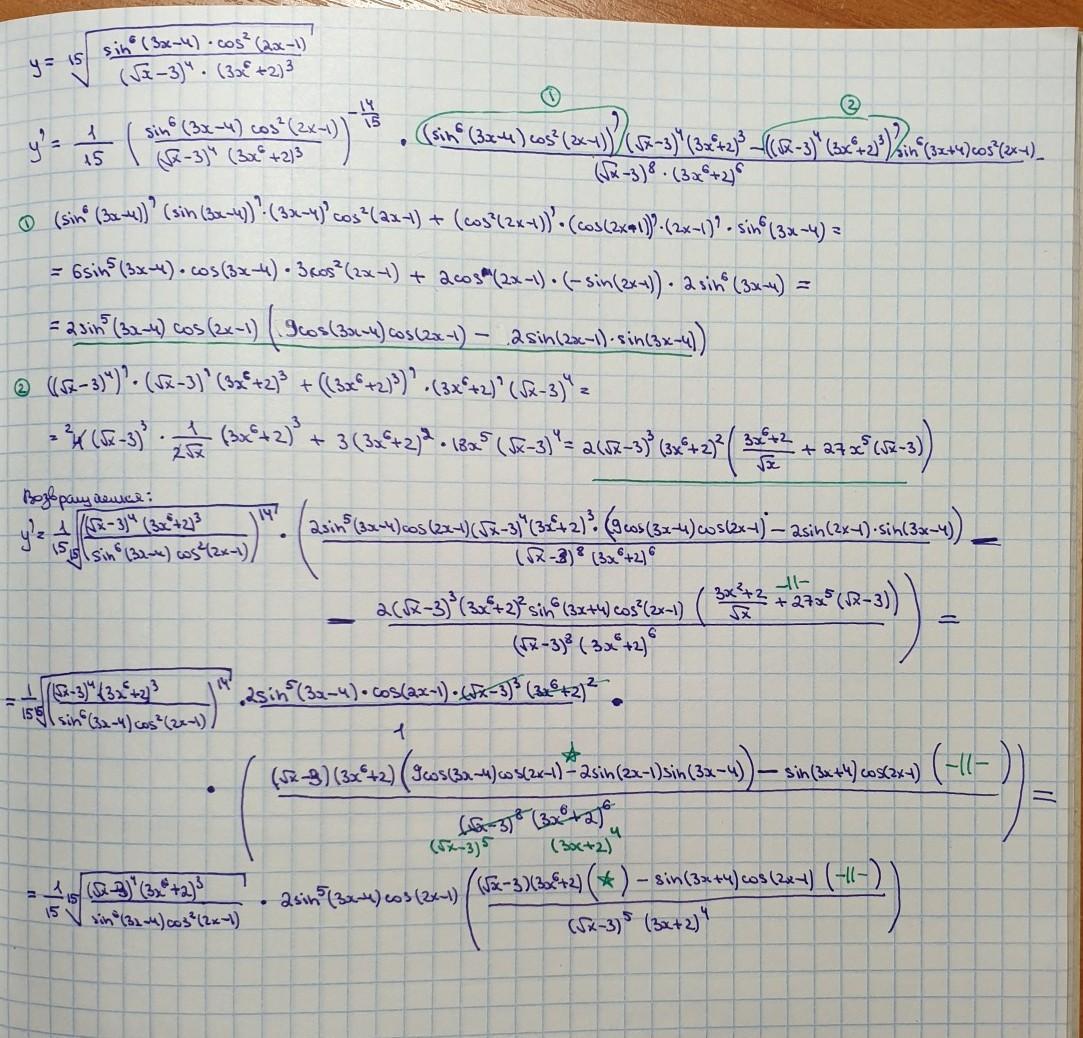 y = ¹⁵√(sin⁶(3x-4) · cos²(2x-1) / (√x-3)⁴ · (3x⁶+2)³)
① ②
y' = 1/15 (sin⁶(3x-4) cos²(2x-1) / (√x-3)⁴ (3x⁶+2)³)^(-14/15) · ((sin⁶(3x-4) cos²(2x-1))' (√x-3)⁴ (3x⁶+2)³ - ((√x-3)⁴ (3x⁶+2)³)' sin⁶(3x+4) cos²(2x-1)) / (√x-3)⁸ · (3x⁶+2)⁶
① (sin⁶(3x-4))' (sin(3x-4))' · (3x-4)' cos²(2x-1) + (cos²(2x-1))' · (cos(2x-1))' · (2x-1)' · sin⁶(3x-4) =
= 6sin⁵(3x-4) · cos(3x-4) · 3cos²(2x-1) + 2cos(2x-1) · (-sin(2x-1)) · 2sin⁶(3x-4) =
= 2sin⁵(3x-4) cos(2x-1) (9cos(3x-4) cos(2x-1) - 2sin(2x-1) · sin(3x-4))
② ((√x-3)⁴)' · (√x-3)' (3x⁶+2)³ + ((3x⁶+2)³)' · (3x⁶+2)' (√x-3)⁴ =
= ²4(√x-3)³ · 1/2√x (3x⁶+2)³ + 3(3x⁶+2)² · 18x⁵ (√x-3)⁴ = 2(√x-3)³ (3x⁶+2)² ((3x⁶+2)/√x + 27x⁵(√x-3))
Возвращаемся:
y' = 1/15 ¹⁵√((√x-3)⁴ (3x⁶+2)³ / sin⁶(3x-4) cos²(2x-1))¹⁴ · (2sin⁵(3x-4) cos(2x-1) (√x-3)⁴ (3x⁶+2)³ · (9cos(3x-4) cos(2x-1) - 2sin(2x-1) · sin(3x-4)) / (√x-3)⁸ (3x⁶+2)⁶ -
-||-
- 2(√x-3)³ (3x⁶+2)² sin⁶(3x+4) cos²(2x-1) ((3x²+2)/√x + 27x⁵(√x-3)) / (√x-3)⁸ (3x⁶+2)⁶) =
= 1/15 ¹⁵√((√x-3)⁴ (3x⁶+2)³ / sin⁶(3x-4) cos²(2x-1))¹⁴ · 2sin⁵(3x-4) · cos(2x-1) · (√x-3)³ (3x⁶+2)² / 1 ·
· ((√x-3) (3x⁶+2) (9cos(3x-4) cos(2x-1) ☆ - 2sin(2x-1) sin(3x-4)) - sin(3x+4) cos(2x-1) (-||-) / (√x-3)⁸ (3x⁶+2)⁶) =
(√x-3)⁵ (3x+2)⁴
= 1/15 ¹⁵√((√x-3)⁴ (3x⁶+2)³ / sin⁶(3x-4) cos²(2x-1)) · 2sin⁵(3x-4) cos(2x-1) ((√x-3) (3x⁶+2) (★) - sin(3x+4) cos(2x-1) (-||-) / (√x-3)⁵ (3x+2)⁴)